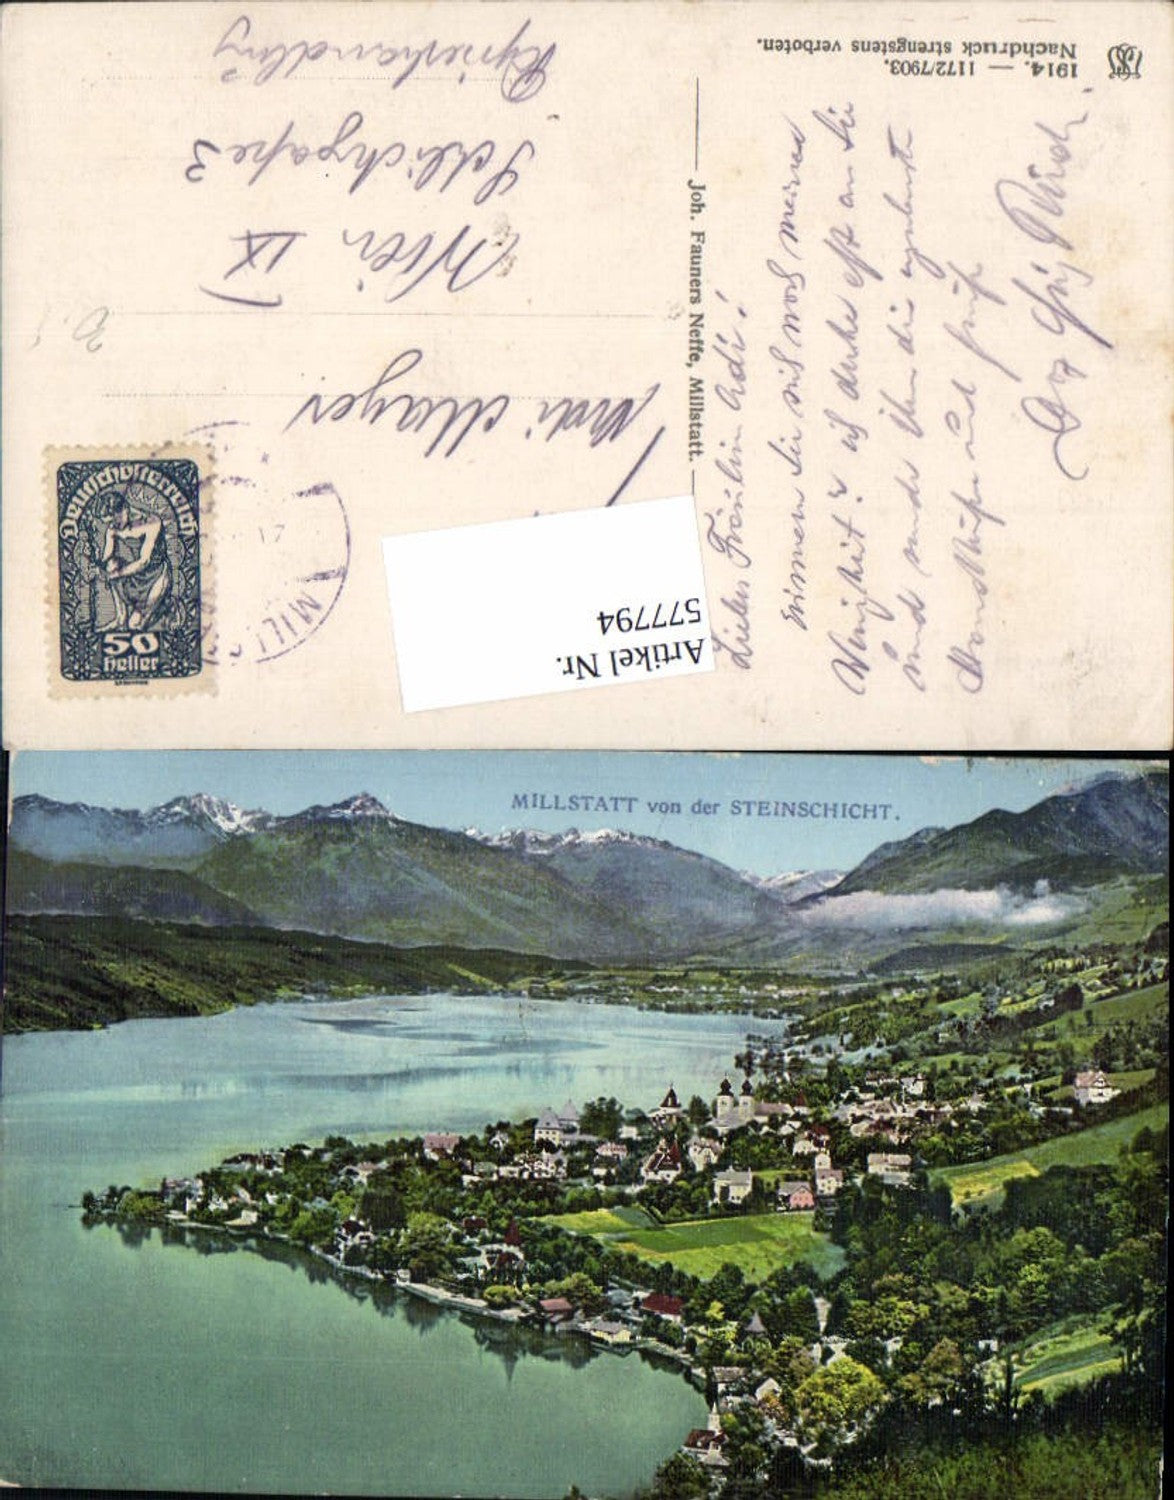 1914. — 1172/7903.
Nachdruck strengstens verboten.
Joh. Fauners Neffe, Millstatt.
Liebes Fräulein Adi!
erinnern Sie sich noch meiner
Wenigkeit? ich denke oft an Sie
und sende Ihnen die
und
Adi Mayer
Wien IX
3
Papierhandlung
Deutschösterreich
50
Heller
MILL
Artikel Nr.
577794
MILLSTATT von der STEINSCHICHT.